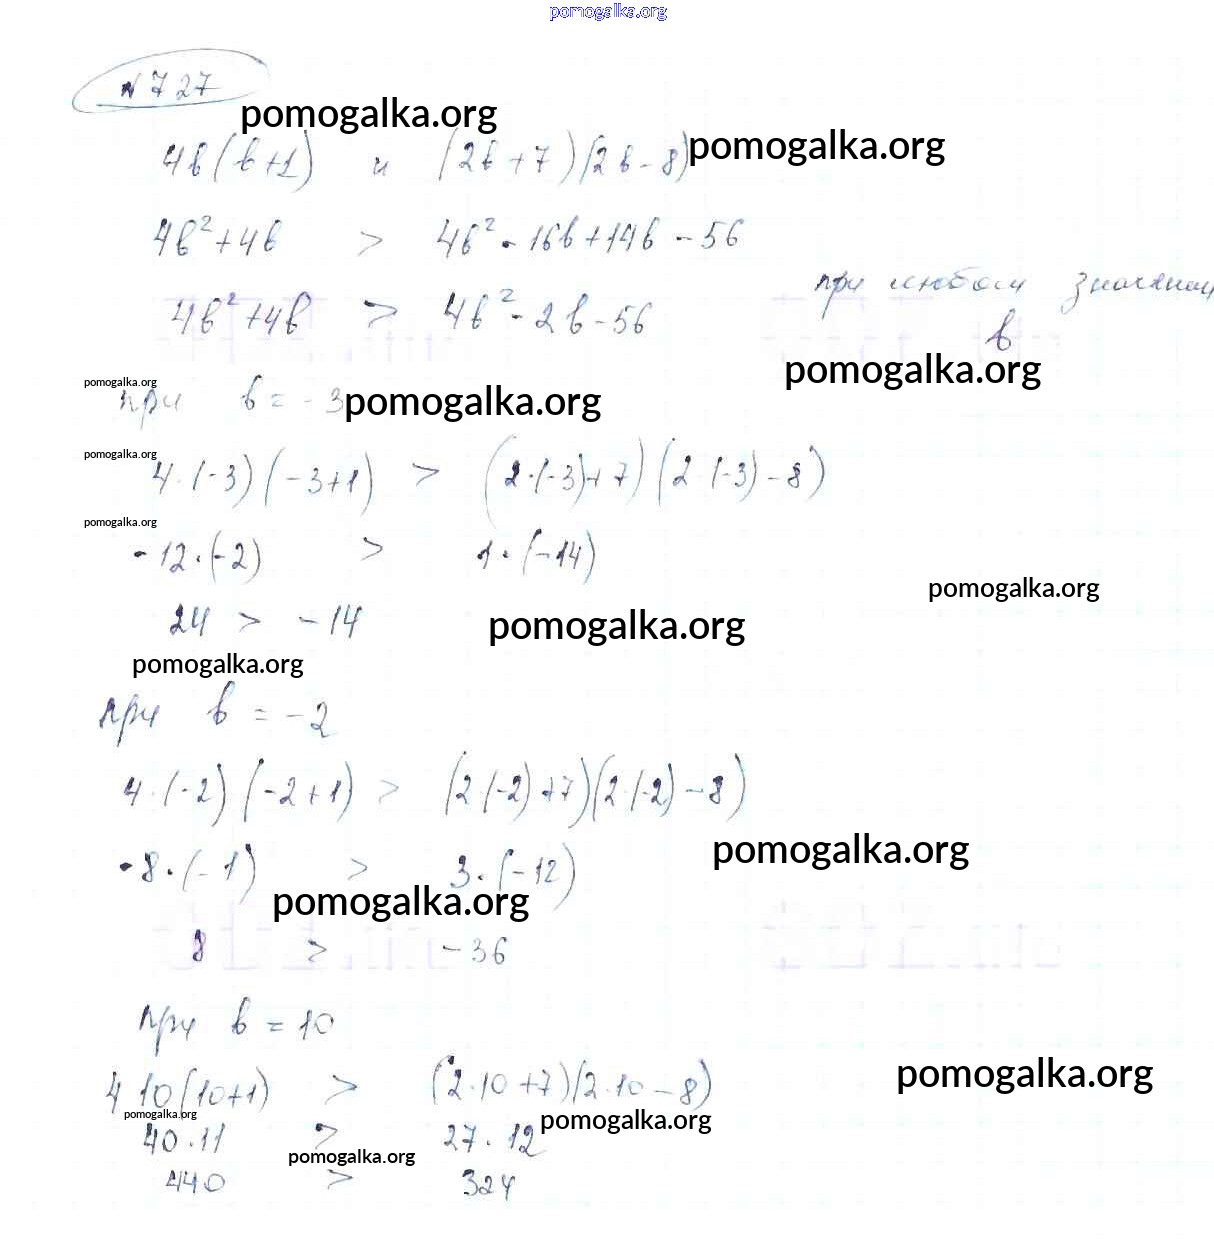 pomogalka.org
№ 727
pomogalka.org
4b(b+1) и (2b+7)(2b-8) pomogalka.org
4b²+4b > 4b²-16b+14b-56
4b²+4b > 4b²-2b-56 при любом
b
pomogalka.org
pomogalka.org
при b = -3 pomogalka.org
pomogalka.org
4·(-3)(-3+1) > (2·(-3)+7)(2·(-3)-8)
pomogalka.org
-12·(-2) > 1·(-14)
pomogalka.org
24 > -14 pomogalka.org
pomogalka.org
при b = -2
4·(-2)(-2+1) > (2·(-2)+7)(2·(-2)-8)
pomogalka.org
-8·(-1) > 3·(-12)
pomogalka.org
8 > -36
при b = 10
pomogalka.org
4·10(10+1) > (2·10+7)(2·10-8)
pomogalka.org pomogalka.org
40·11 > 27·12
pomogalka.org
440 > 324